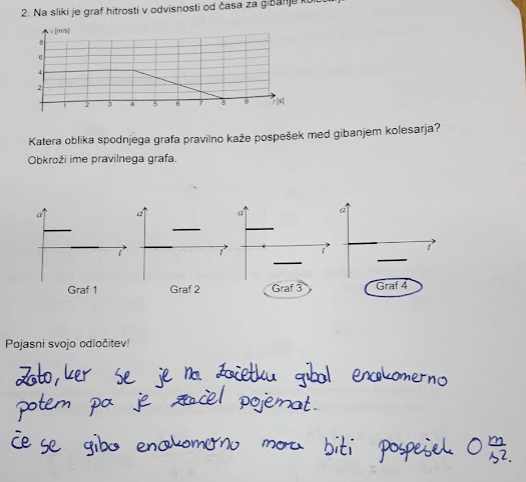 2. Na sliki je graf hitrosti v odvisnosti od časa za gibanje
v [m/s]
8
6
4
2
1 2 3 4 5 6 7 8 9 t [s]
Katera oblika spodnjega grafa pravilno kaže pospešek med gibanjem kolesarja?
Obkroži ime pravilnega grafa.
a a a a
t t t t
Graf 1 Graf 2 Graf 3 Graf 4
Pojasni svojo odločitev!
Zato, ker se je na začetku gibal enakomerno
potem pa je začel pojemat.
Če se giba enakomerno mora biti pospešek 0 m/s².